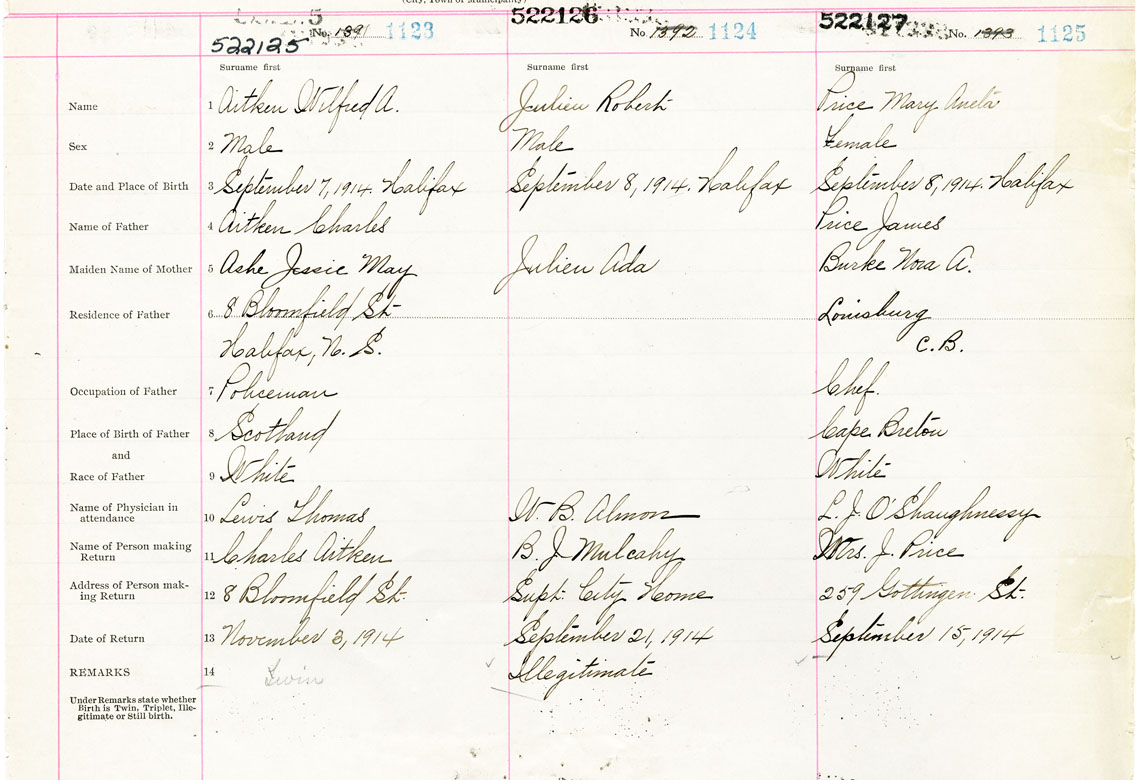 (City, Town or Municipality)
5 522126 522127
522125 No. 1391 1123 No 1392 1124 No. 1393 1125
Surname first Surname first Surname first
Name 1 Aitken Wilfred A. Julien Robert Price Mary Aneta
Sex 2 Male Male Female
Date and Place of Birth 3 September 7, 1914. Halifax September 8, 1914. Halifax September 8, 1914. Halifax
Name of Father 4 Aitken Charles Price James
Maiden Name of Mother 5 Ashe Jessie May Julien Ada Burke Nora A.
Residence of Father 6 8 Bloomfield St. Louisburg
Halifax, N. S. C. B.
Occupation of Father 7 Policeman Chef.
Place of Birth of Father 8 Scotland Cape Breton
and
Race of Father 9 White White
Name of Physician in
attendance 10 Lewis Thomas W. B. Almon L. J. O'Shaughnessy
Name of Person making
Return 11 Charles Aitken B. J Mulcahy Mrs. J. Price
Address of Person mak-
ing Return 12 8 Bloomfield St. Supt. City Home 259 Gottingen St.
Date of Return 13 November 3, 1914 September 21, 1914 September 15, 1914
REMARKS 14 Twin Illegitimate
Under Remarks state whether
Birth is Twin, Triplet, Ille-
gitimate or Still birth.